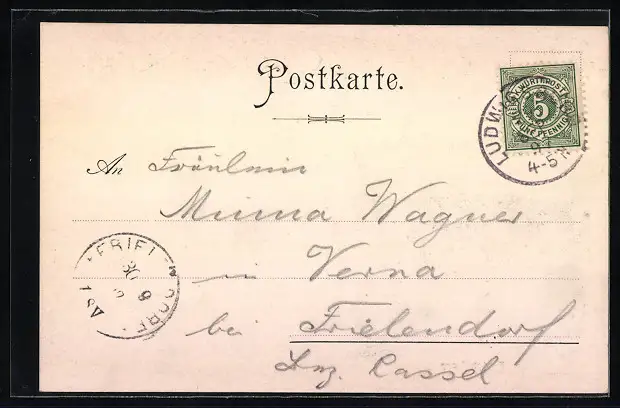 Postkarte.
K. WÜRTT. POST
5
FÜNF PFENNIG
LUDW
4-5 N
An Fräulein
Minna Wagner
in Verna
bei Frielendorf
Bez. Cassel
FRIELENDORF
30
9